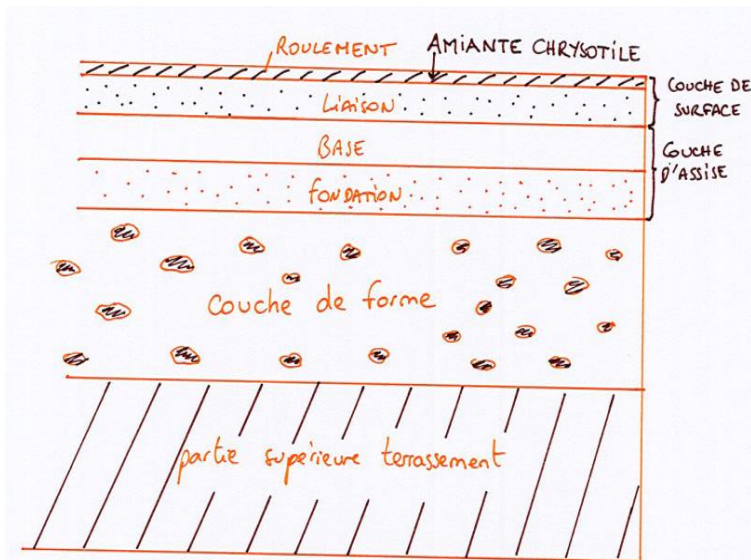 ROULEMENT
AMIANTE CHRYSOTILE
LIAISON
COUCHE DE
SURFACE
BASE
COUCHE
D'ASSISE
FONDATION
Couche de forme
partie supérieure terrassement